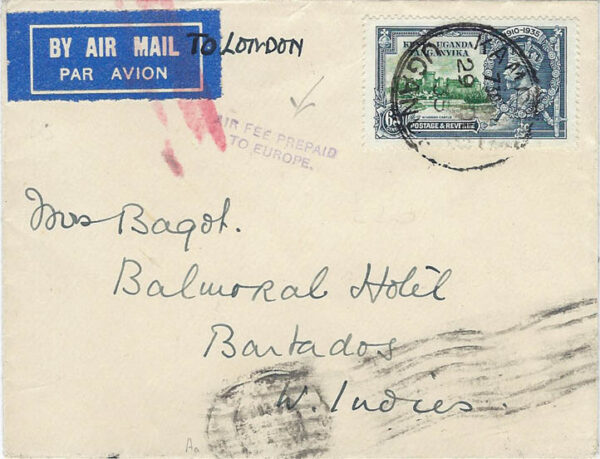 BY AIR MAIL
PAR AVION
To LONDON
AIR FEE PREPAID
TO EUROPE.
1910-1935
KENYA UGANDA
TANGANYIKA
WINDSOR CASTLE
POSTAGE & REVENUE
KAMPALA
UGANDA
29
Mrs Bagot.
Balmoral Hotel
Barbados
W. Indies.
Aa